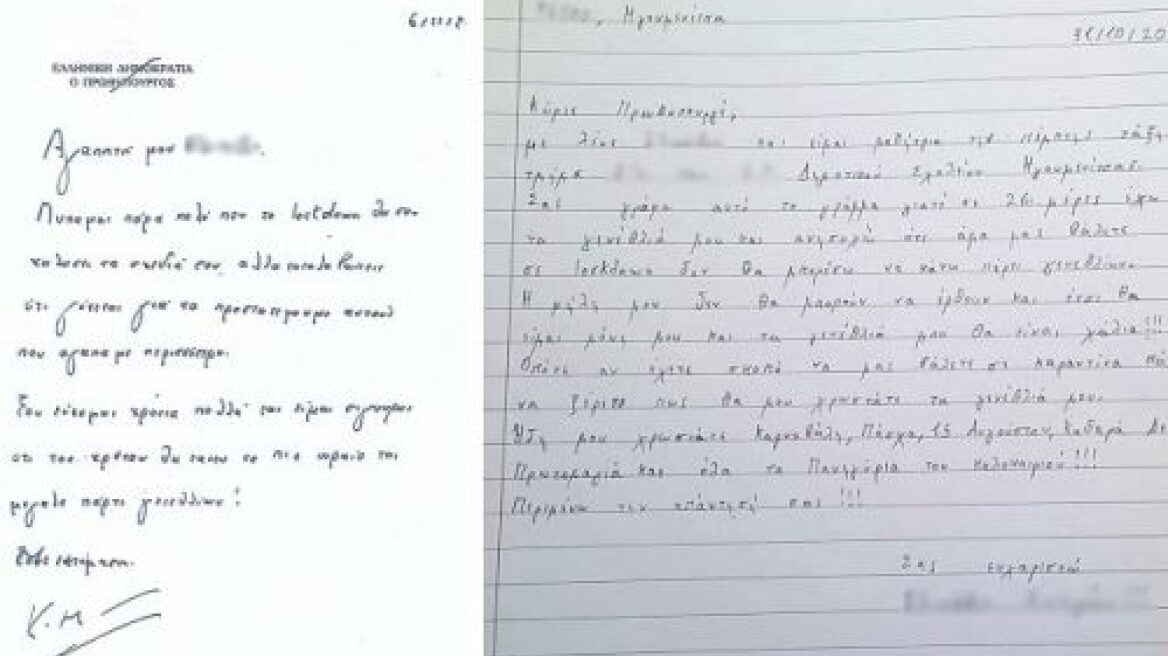 6/11/2
ΕΛΛΗΝΙΚΗ ΔΗΜΟΚΡΑΤΙΑ
Ο ΠΡΩΘΥΠΟΥΡΓΟΣ
Αγαπητή μου
Λυπάμαι πάρα πολύ που το lockdown θα σου
χαλάσει τα σχέδιά σου, αλλά καταλαβαίνεις
ότι γίνεται για να προστατέψουμε αυτούς
που αγαπάμε περισσότερο.
Σου εύχομαι χρόνια πολλά και είμαι σίγουρος
ότι του χρόνου θα κάνεις το πιο ωραίο και
μεγάλο πάρτι γενεθλίων!
Με εκτίμηση.
Κ.Μ
Ηγουμενίτσα
31/10/20
Κύριε Πρωθυπουργέ,
με λένε και είμαι μαθήτρια της πέμπτης τάξη
τμήμα Δημοτικού Σχολείου Ηγουμενίτσας.
Σας γράφω αυτό το γράμμα γιατί σε 26 μέρες έχω
τα γενέθλιά μου και ανησυχώ ότι άμα μας βάλετε
σε lockdown δεν θα μπορέσω να κάνω πάρτι γενεθλίων.
Η φίλη μου δεν θα μπορούν να έρθουν και έτσι θα
είμαι μόνη μου και τα γενέθλιά μου θα είναι χάλια!!!
Οπότε αν έχετε σκοπό να μας βάλετε σε καραντίνα
να ξέρετε πως θα μου χρωστάτε τα γενέθλιά μου.
Ήδη μου χρωστάτε Καρναβάλι, Πάσχα, 15 Αύγουστου, Καθαρά Δε
Πρωτομαγιά και όλα τα Πανηγύρια του καλοκαιριού!!!
Περιμένω την απάντησή σας!!!
Σας ευχαριστώ